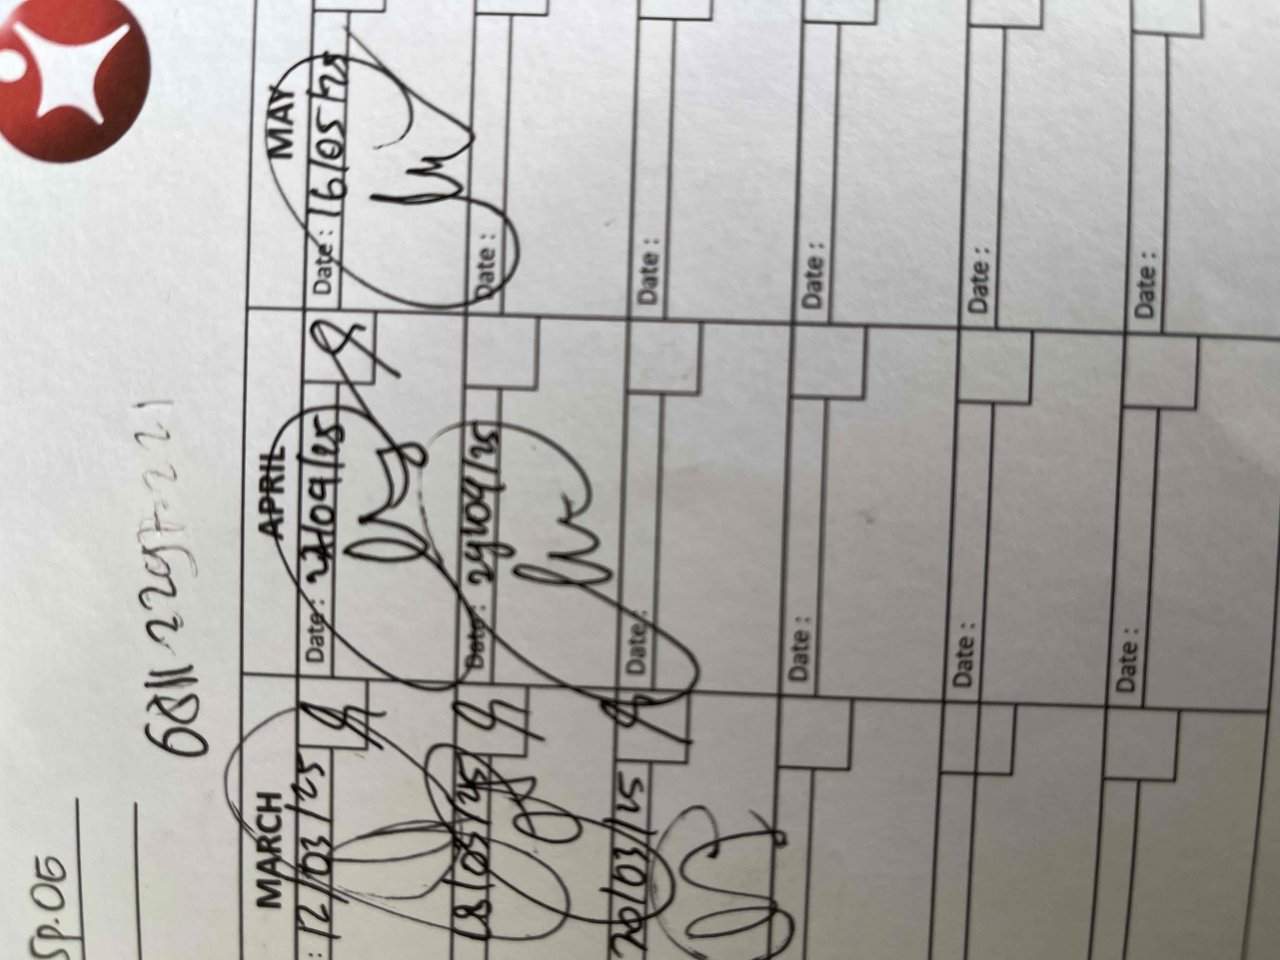 Sp.OG
MARCH APRIL MAY
: 12/03/25 Date : 22/04/25 Date : 16/05/25
18/03/25 Date : 29/04/25 Date :
20/03/25 Date : Date :
Date : Date :
Date : Date :
Date : Date :